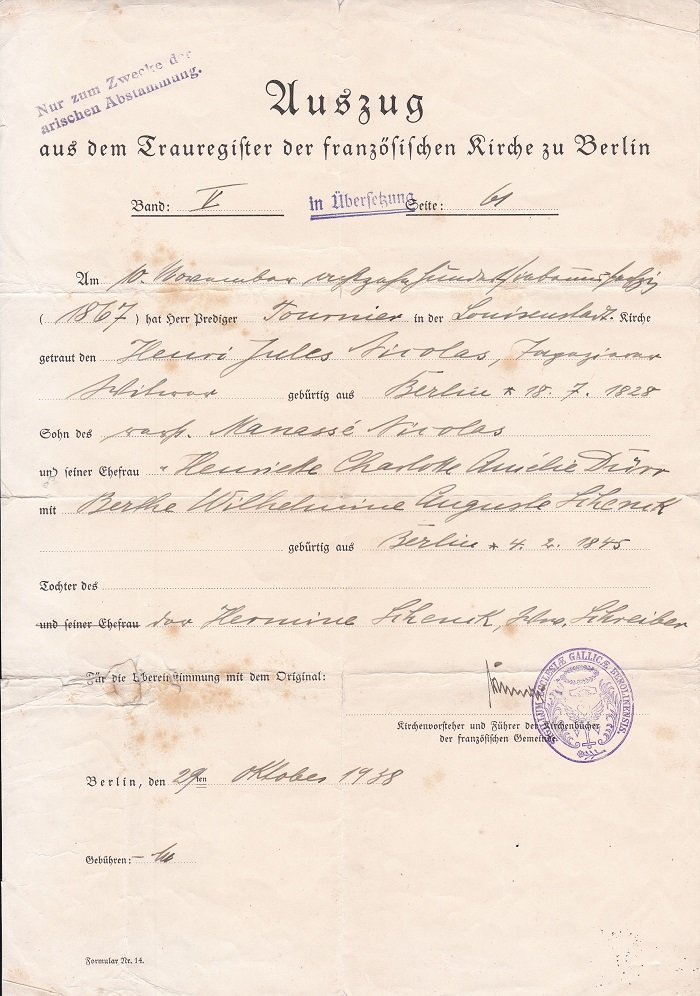 Nur zum Zwecke der
arischen Abstammung.
Auszug
aus dem Trauregister der französischen Kirche zu Berlin
Band: V in Übersetzung Seite: 61
Am 10. November achtzehnhundertsiebenundsechzig
(1867) hat Herr Prediger Tournier in der Louisenstadt-Kirche
getraut den Henri Jules Nicolas,
Witwer gebürtig aus Berlin * 18. 7. 1828
Sohn des Manassé Nicolas
und seiner Ehefrau Henriette Charlotte Amélie Dürr
mit Berthe Wilhelmine Auguste Schenck
gebürtig aus Berlin * 4. 2. 1845
Tochter des
und seiner Ehefrau der Hermine Schenck, Schreiber
Für die Übereinstimmung mit dem Original:
SIGILLUM ECCLESIÆ GALLICÆ BEROLINENSIS.
Kirchenvorsteher und Führer der Kirchenbücher
der französischen Gemeinde.
Berlin, den 29ten Oktober 1938
Gebühren:
Formular Nr. 14.